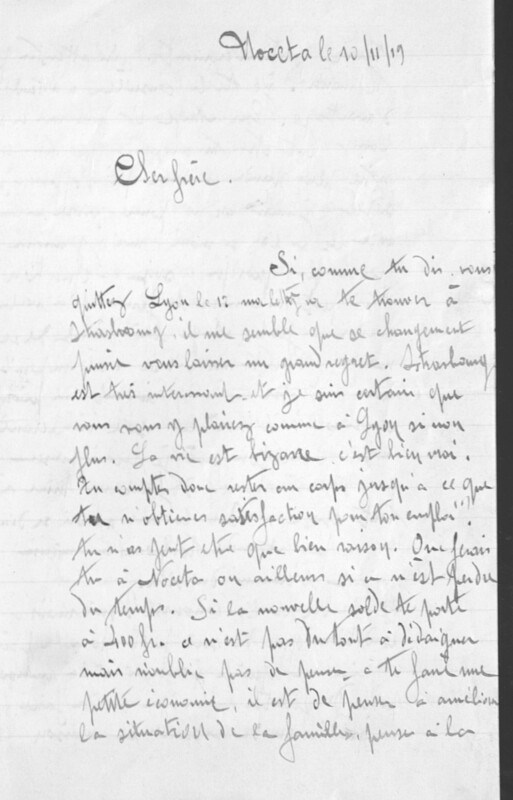 Noceta le 10/11/19
Cher frère.
Si, comme tu dis, vous
quittez Lyon le 12 ma lettre va te trouver à
Strasbourg, il me semble que ce changement
puisse vous laisser un grand regret. Strasbourg
est très interessant et je suis certain que
vous vous y plairez comme à Lyon si non
plus. La vie est bizarre c'est bien vrai.
Tu comptes donc rester au corps jusqu'à ce que
tu n'obtienes satisfaction pour ton emploi
tu n'as peut etre que bien raison. Que ferais
tu à Noceta ou ailleurs si ce n'est perdre
du temps. Si la nouvelle solde te porte
à 400 fr. ce n'est pas du tout à dédaigner
mais n'oublie pas de penser à te faire une
petite économie, il est de penser à améliorer
la situation de la famille, pense à la